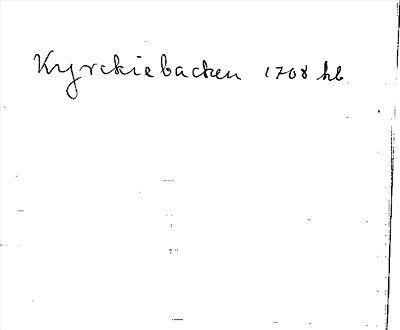 Kyrckiebacken 1708 hb